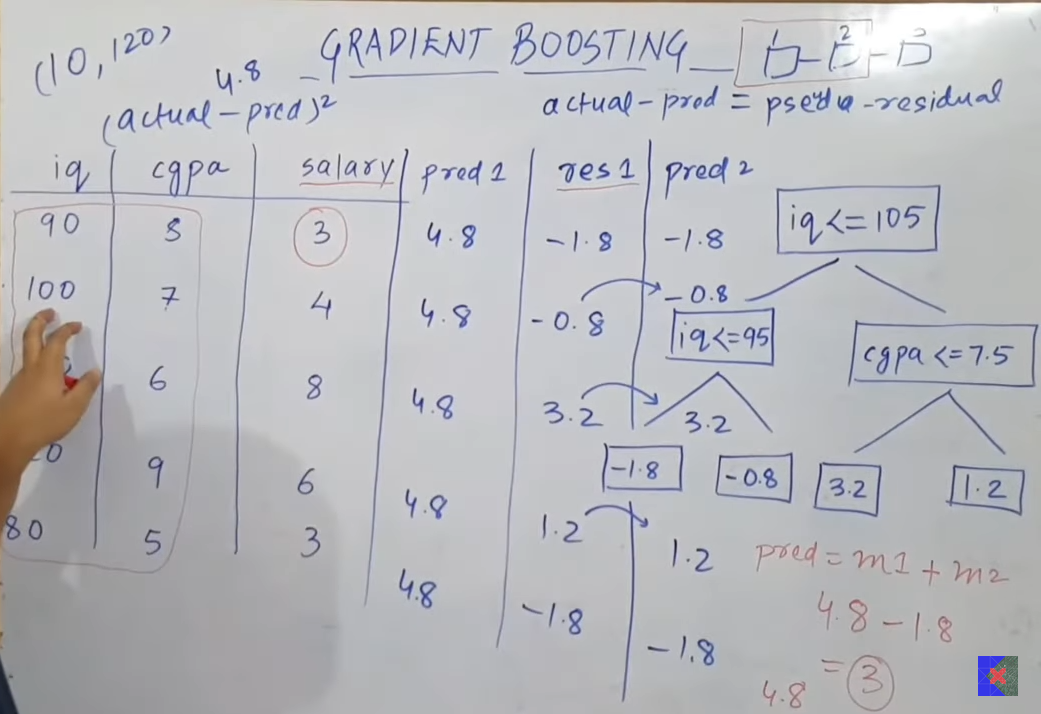 (10, 120)
GRADIENT BOOSTING
1 2 3
4.8
(actual - pred)²
actual - pred = pseudo - residual
iq cgpa salary pred 1 res 1 pred 2
90 8 3 4.8 -1.8 -1.8
100 7 4 4.8 -0.8 -0.8
6 8 4.8 3.2 3.2
9 6 4.8 1.2 1.2
80 5 3 4.8 -1.8 -1.8
iq <= 105
iq <= 95
cgpa <= 7.5
-1.8 -0.8 3.2 1.2
pred = m1 + m2
4.8 - 1.8
= 3
4.8